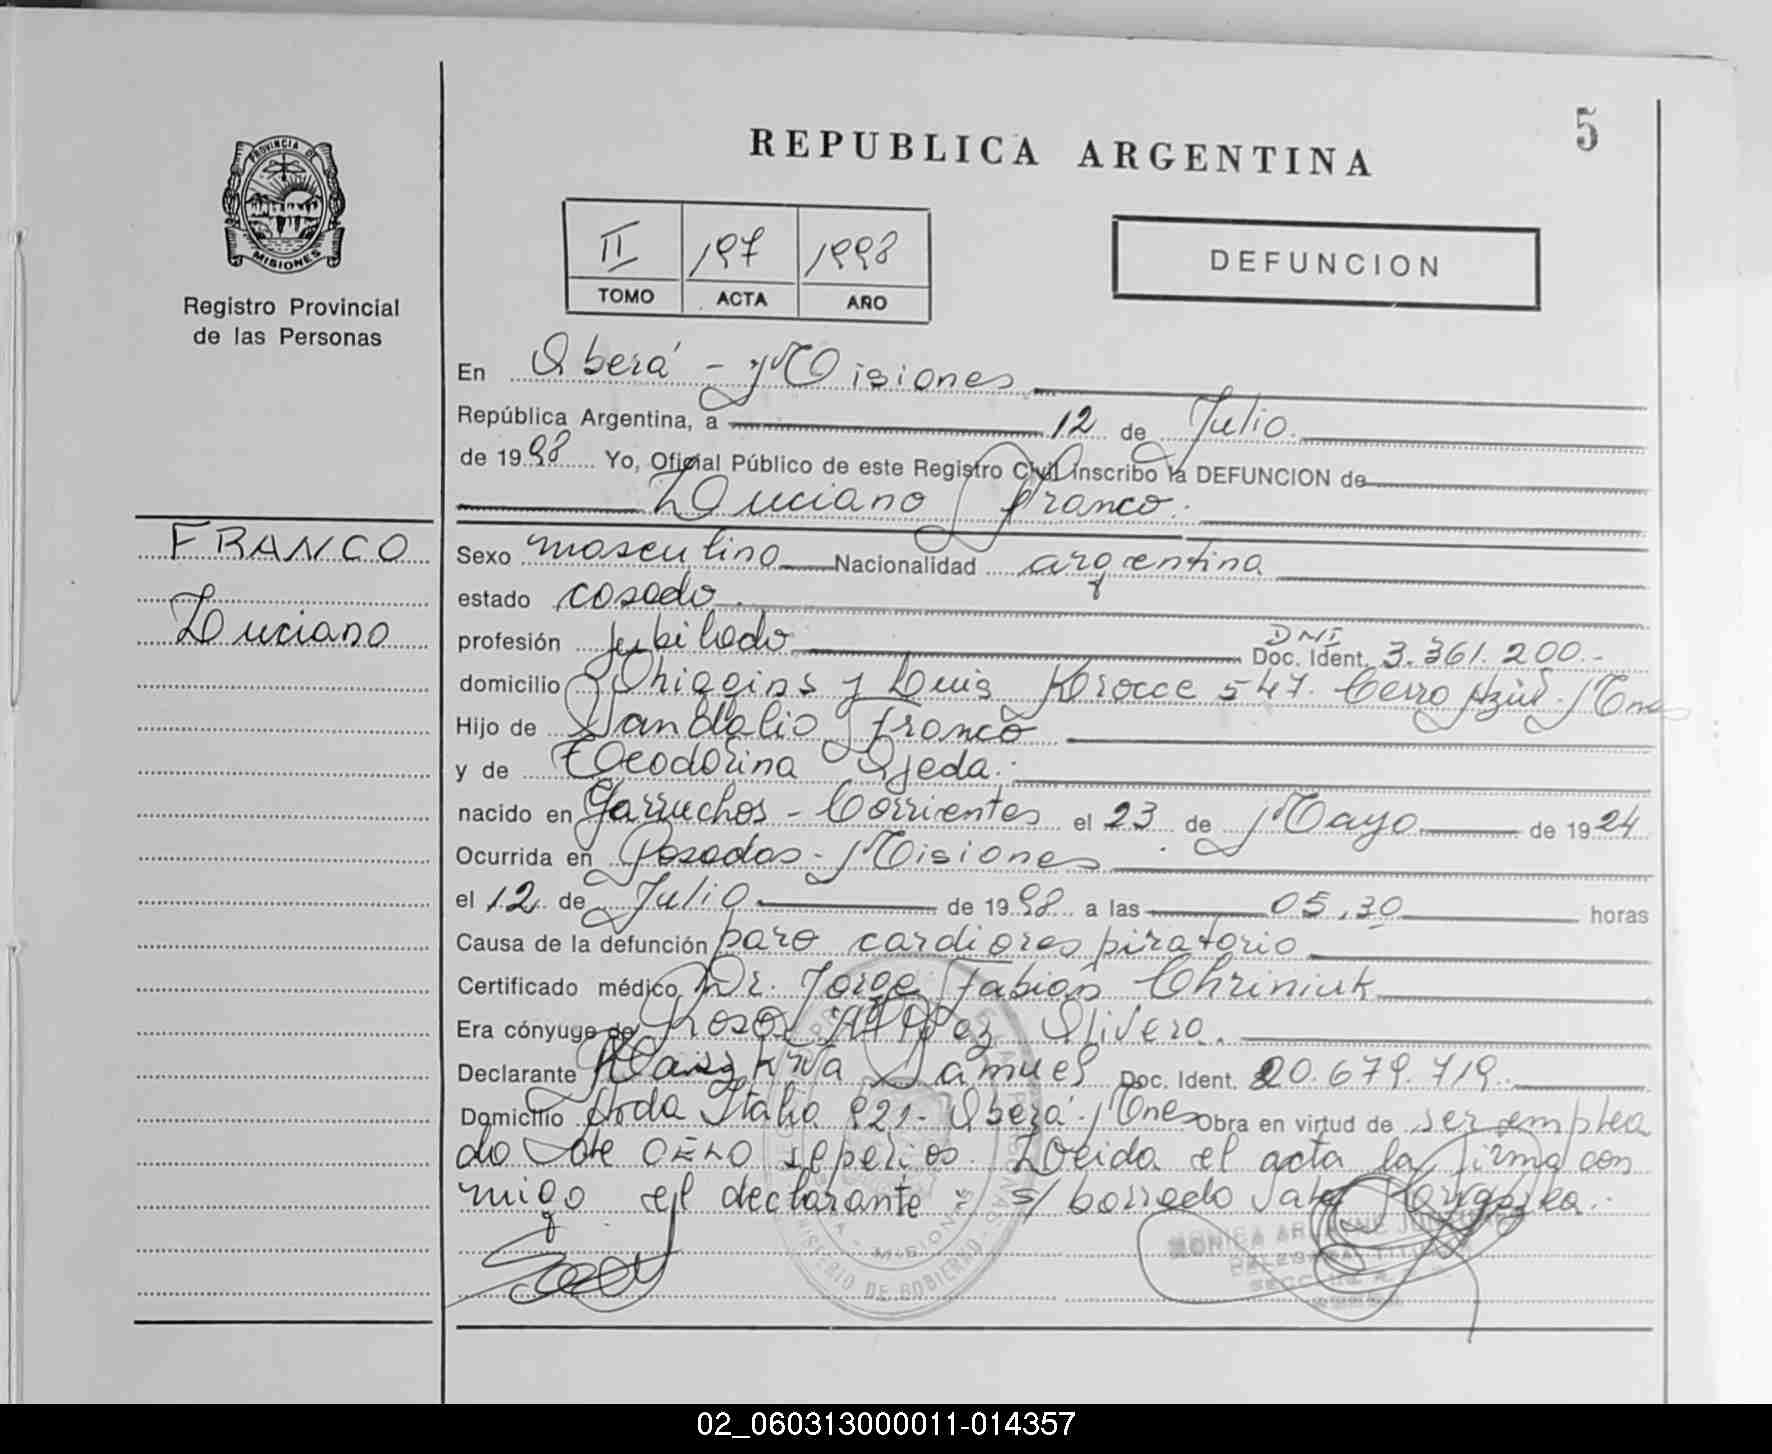 5
REPUBLICA ARGENTINA
PROVINCIA DE
MISIONES
Registro Provincial
de las Personas
II 197 1998
TOMO ACTA AÑO
DEFUNCION
En Oberá - Misiones
República Argentina, a 12 de Julio.
de 1998 Yo, Oficial Público de este Registro Civil inscribo la DEFUNCION de
Luciano Franco.
FRANCO
Luciano
Sexo masculino Nacionalidad argentina
estado casado.
profesión jubilado DNI Doc. Ident. 3.361.200.-
domicilio Ohiggins y Luis 547. Cerro Azul. Mnes
Hijo de Vandalio Franco
y de Teodorina Ojeda.
nacido en Garruchos - Corrientes el 23 de Mayo de 1924
Ocurrida en Posadas - Misiones
el 12 de Julio de 1998 a las 05,30 horas
Causa de la defunción paro cardiorespiratorio
Certificado médico Dr. Jorge Fabian Chriniuk
Era cónyuge de Rosa Olivera.
Declarante Samuel Doc. Ident. 20.679.719.
Domicilio Avda Italia 921 - Oberá - Mnes Obra en virtud de ser emplea
do de CELO sepelios. Leida el acta la firma con
migo el declarante s/ borrado
MISIONES
MINISTERIO DE GOBIERNO
02_060313000011-014357